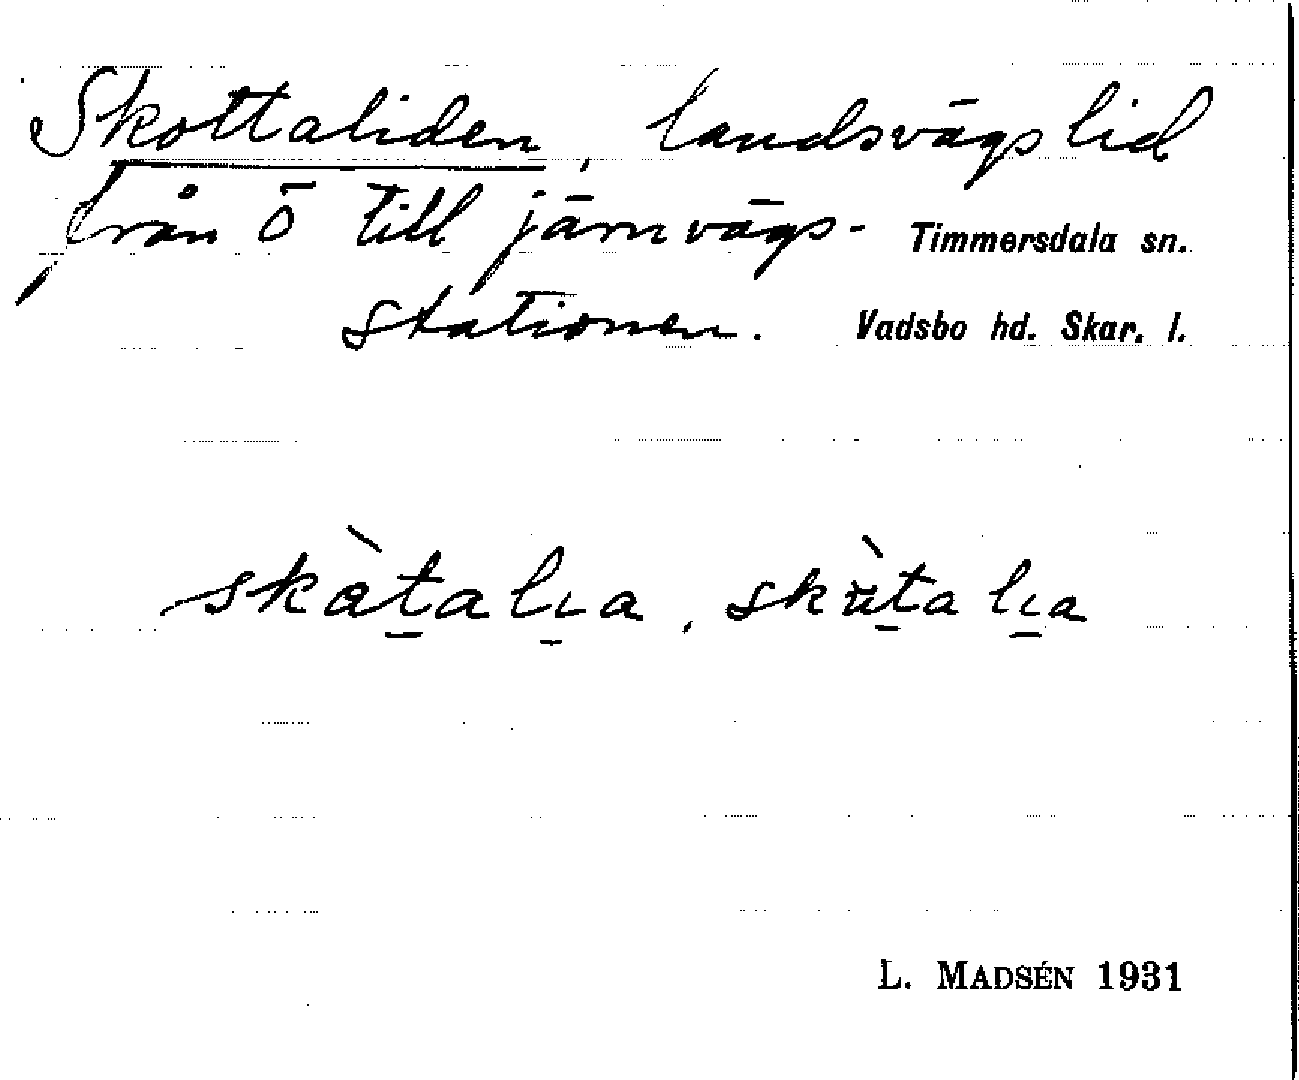 Skottaliden, landsvägslid
från Ö till järnvägs- Timmersdala sn.
stationen. Vadsbo hd. Skar. l.
skàta lıa, skùta lıa
L. MADSÉN 1931